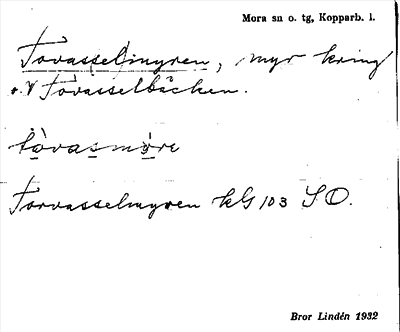 Mora sn o. tg, Kopparb. l.
Tovassel)myren, myr kring
o. V Tovasselbäcken.
tòvasmỳre
Torvasselmyren kG 103 SO.
Bror Lindén 1932